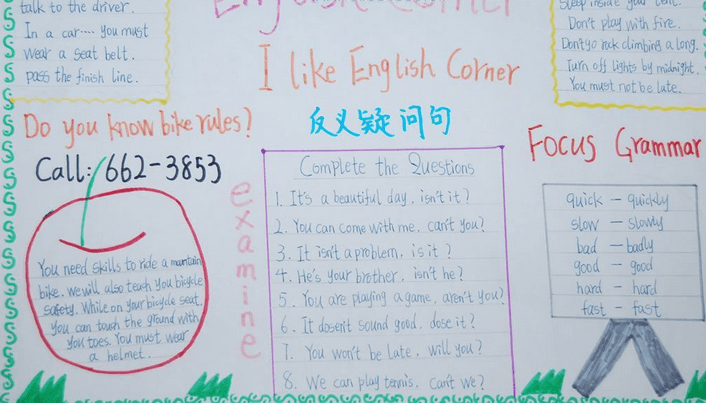 talk to the driver.
In a car.... you must
wear a seat belt.
pass the finish line.
English Corner
sleep inside your tent.
Don't play with fire.
Don't go rock climbing a long.
Turn off lights by midnight.
You must not be late.
I like English Corner
反义疑问句
Do you know bike rules?
Call: 662-3853
You need skills to ride a mountain
bike. we will also teach you bicycle
safety. While on your bicycle seat,
you can touch the ground with
you toes. You must wear
a helmet.
examine
Complete the Questions
1. It's a beautiful day, isn't it?
2. You can come with me, can't you?
3. It isn't a problem, is it?
4. He's your brother, isn't he?
5. You are playing a game, aren't you?
6. It doesn't sound good, dose it?
7. You won't be late, will you?
8. We can play tennis, can't we?
Focus Grammar
quick — quickly
slow — slowly
bad — badly
good — good
hard — hard
fast — fast